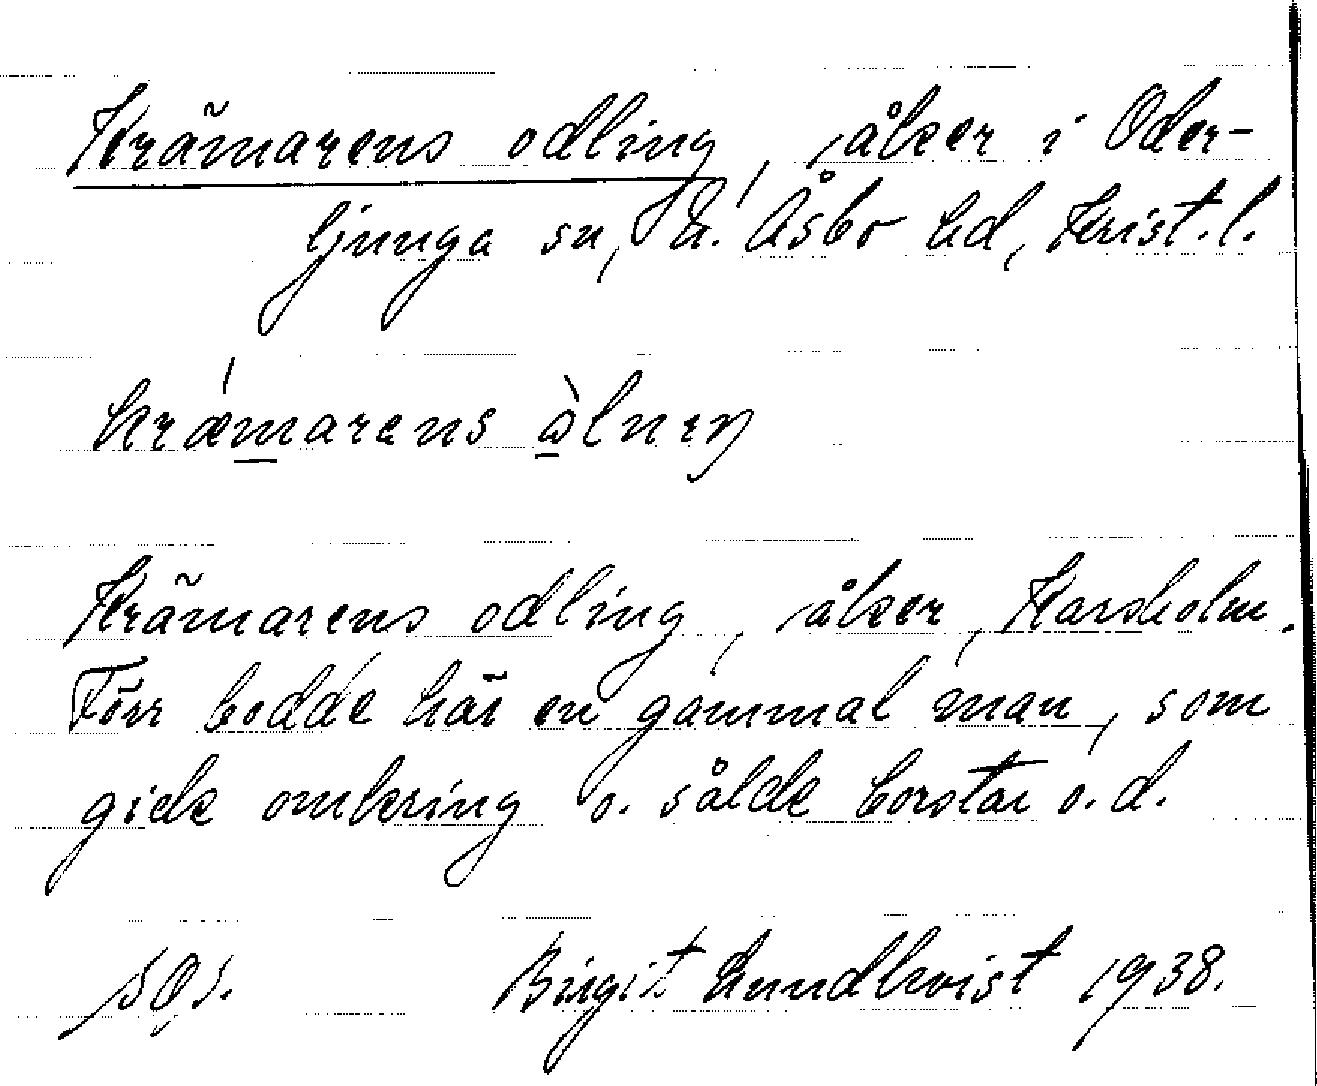 Krämarens odling, åker i Oder-
ljunga sn, N. Åsbo hd, Krist. l.
kræ´marens ὼlnıŋ
Krämarens odling, åker, Karsholm.
Förr bodde här en gammal man, som
gick omkring o. sålde borstar o.d.
Birgit Lundkvist 1938.